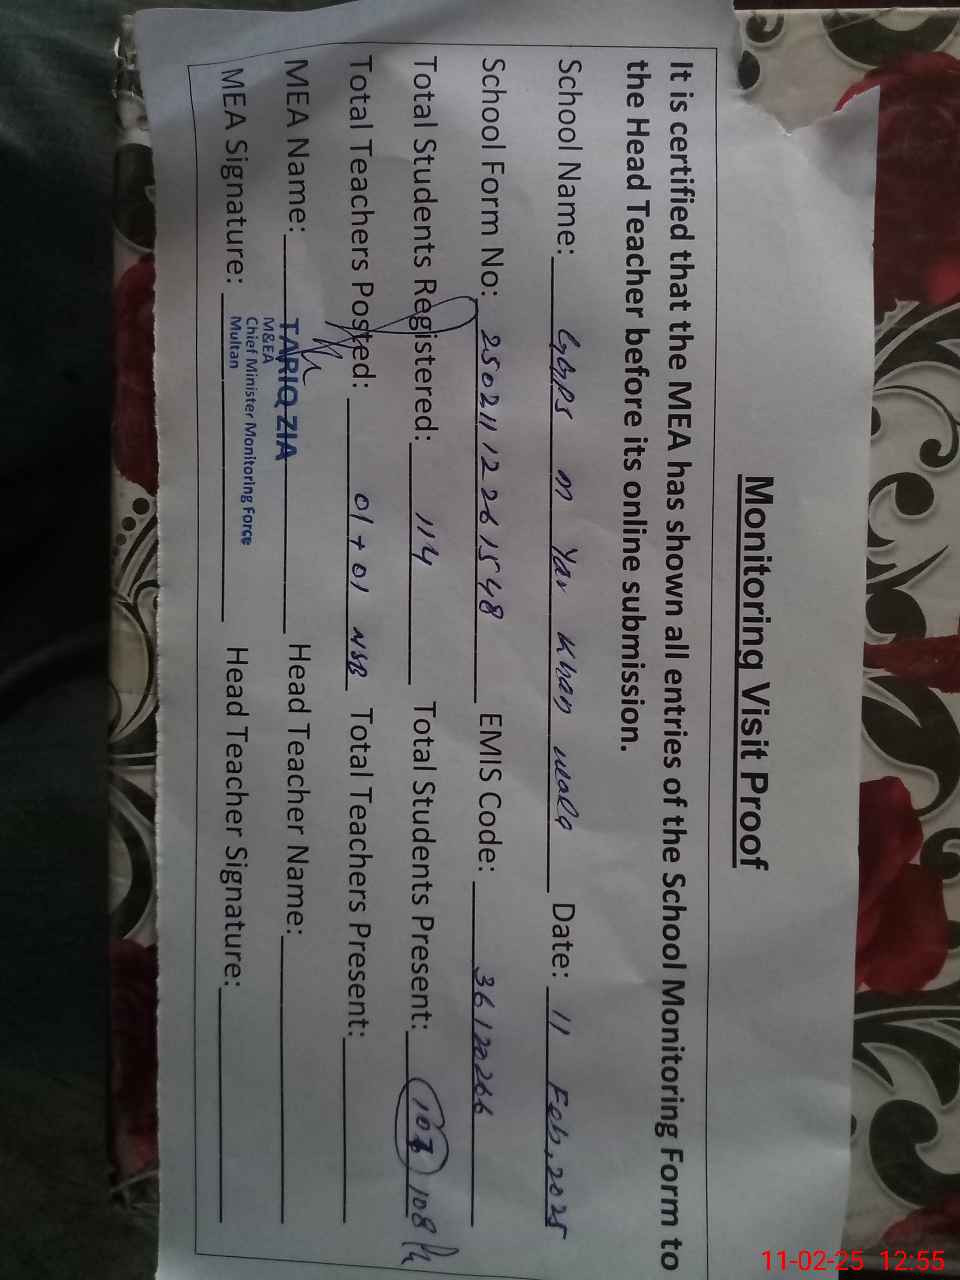 Monitoring Visit Proof
It is certified that the MEA has shown all entries of the School Monitoring Form to
the Head Teacher before its online submission.
School Name: GGPS M Yar Khan wala Date: 11 Feb, 2025
School Form No: 25021112261548 EMIS Code: 36120266
Total Students Registered: 114 Total Students Present: 108
Total Teachers Posted: 01+01 NSB Total Teachers Present:
MEA Name: TARIQ ZIA Head Teacher Name:
M&EA
Chief Minister Monitoring Force
Multan
MEA Signature: Head Teacher Signature:
11-02-25 12:55